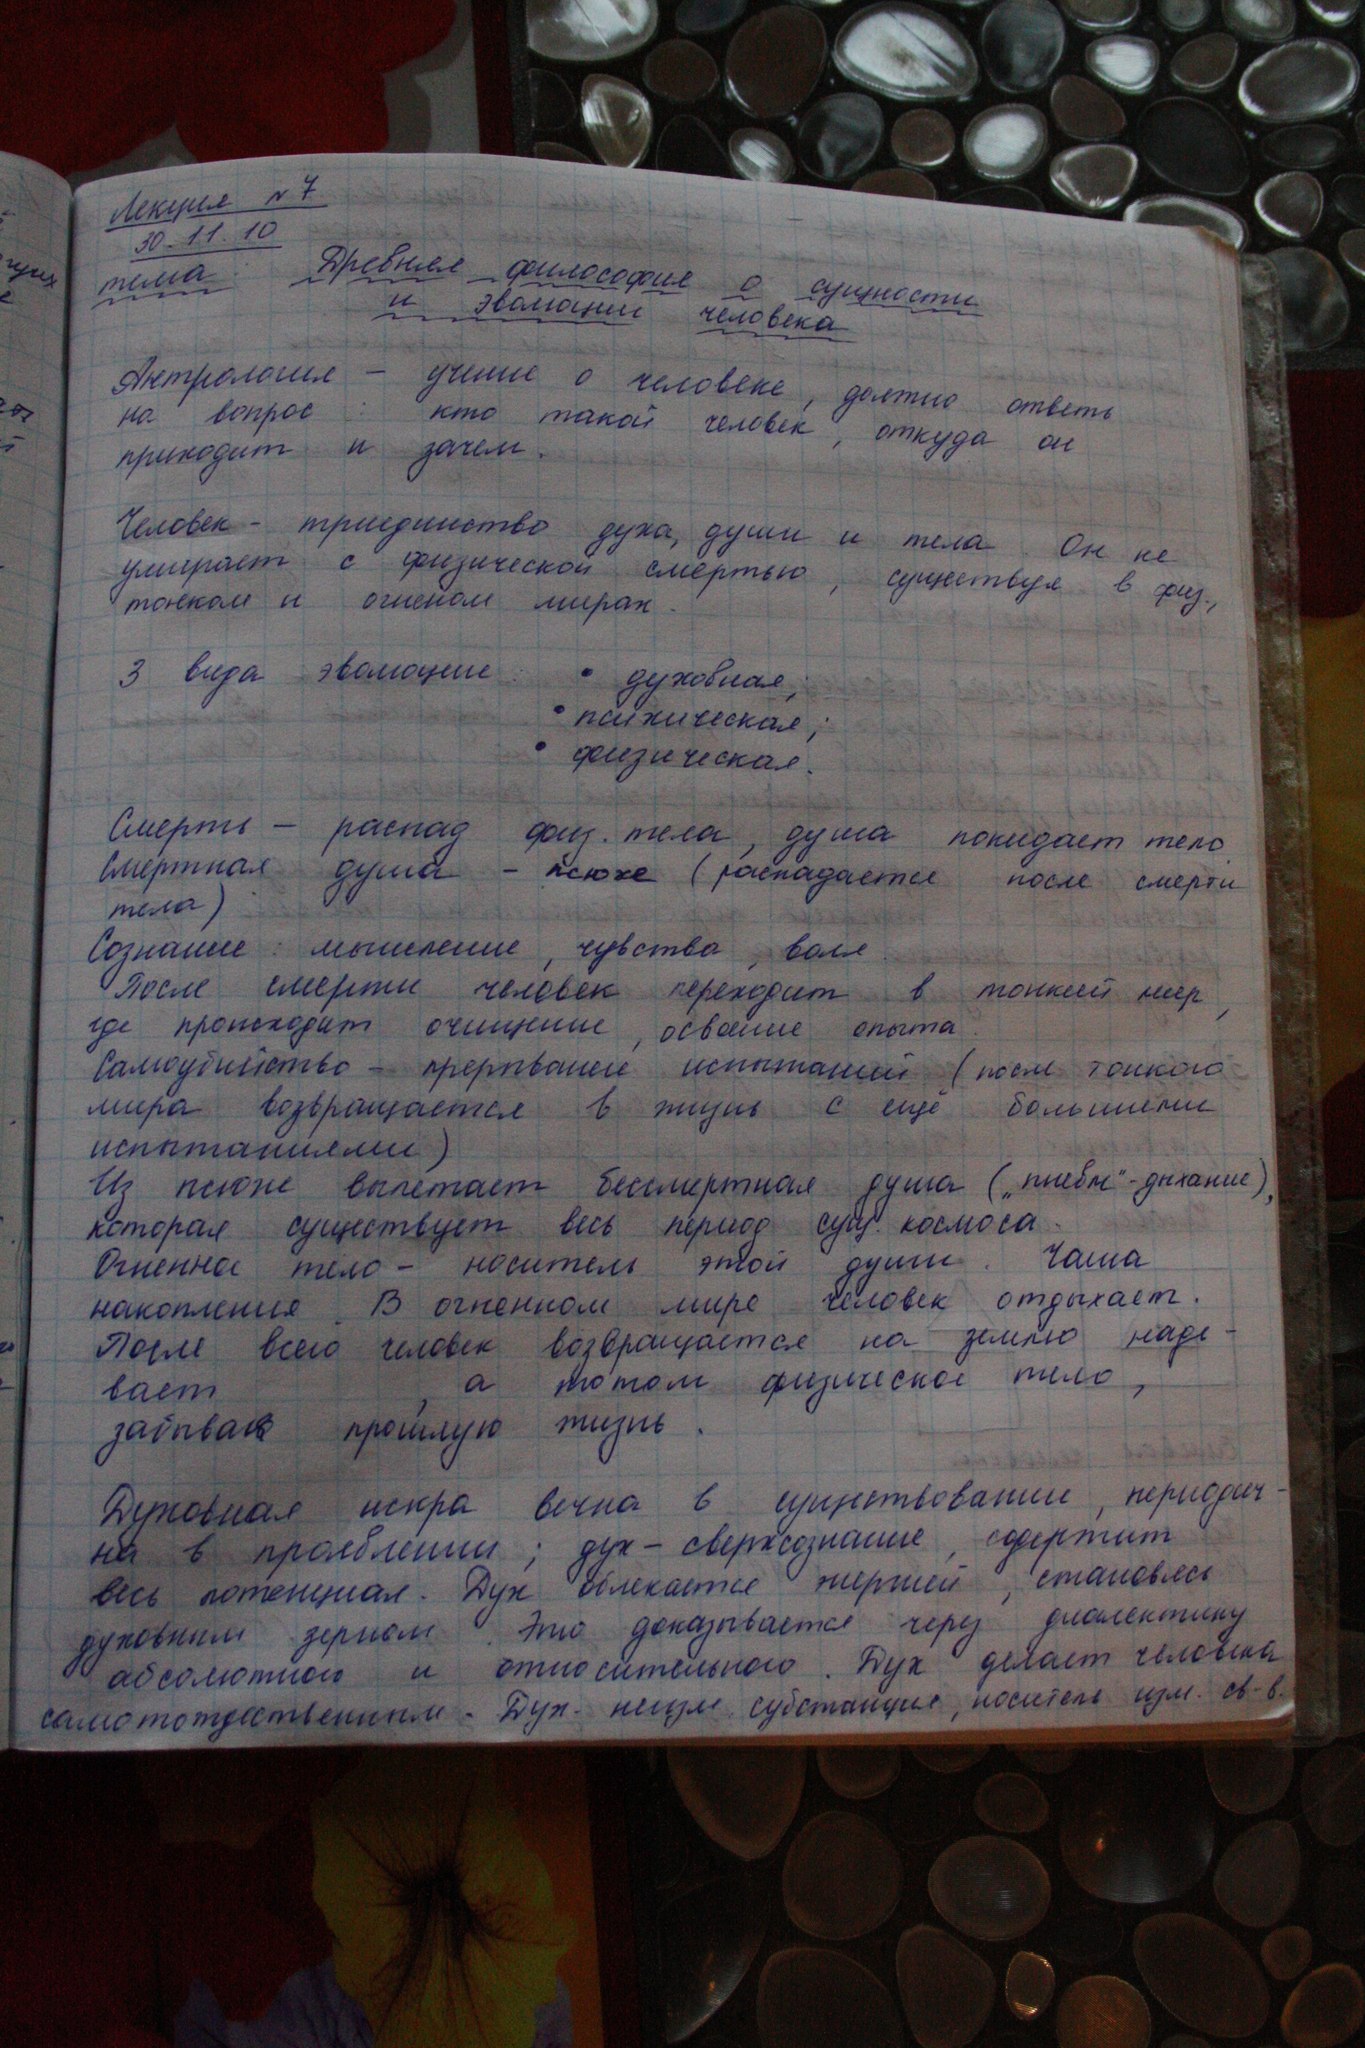 Лекция №7
30.11.10
тема: Древняя философия о сущности
и эволюции человека
Антрология – учение о человеке, должно ответь
на вопрос: кто такой человек, откуда он
приходит и зачем.
Человек – триединство духа, души и тела. Он не
умирает с физической смертью, существуя в физ.,
тонком и огненом мирах.
3 вида эволюции: • духовная;
• психическая;
• физическая.
Смерть – распад физ. тела, душа покидает тело.
Смертная душа – псюхе (распадается после смерти
тела)
Сознание: мышление, чувства, воля.
После смерти человек переходит в тонкий мир,
где происходит очищение, освоение опыта.
Самоубийство – прерывание испытаний (после тонкого
мира возвращается в жизнь с ещё большими
испытаниями)
Из псюхе вылетает бессмертная душа („пневм"-дыхание),
которая существует весь период сущ. космоса.
Огненное тело – носитель этой души. Чаша
накопления. В огненном мире человек отдыхает.
После всего человек возвращается на землю наде-
вает , а потом физическое тело,
забывая прошлую жизнь.
Духовная искра вечна в существовании, периодич-
на в проявлении; дух – сверхсознание, содержит
весь потенциал. Дух облекается энергией, становясь
духовным зерном. Это доказывается через диалектику
абсолютного и относительного. Дух делает человека
самотождественным. Дух - неизм. субстанция, носитель изм. св-в.